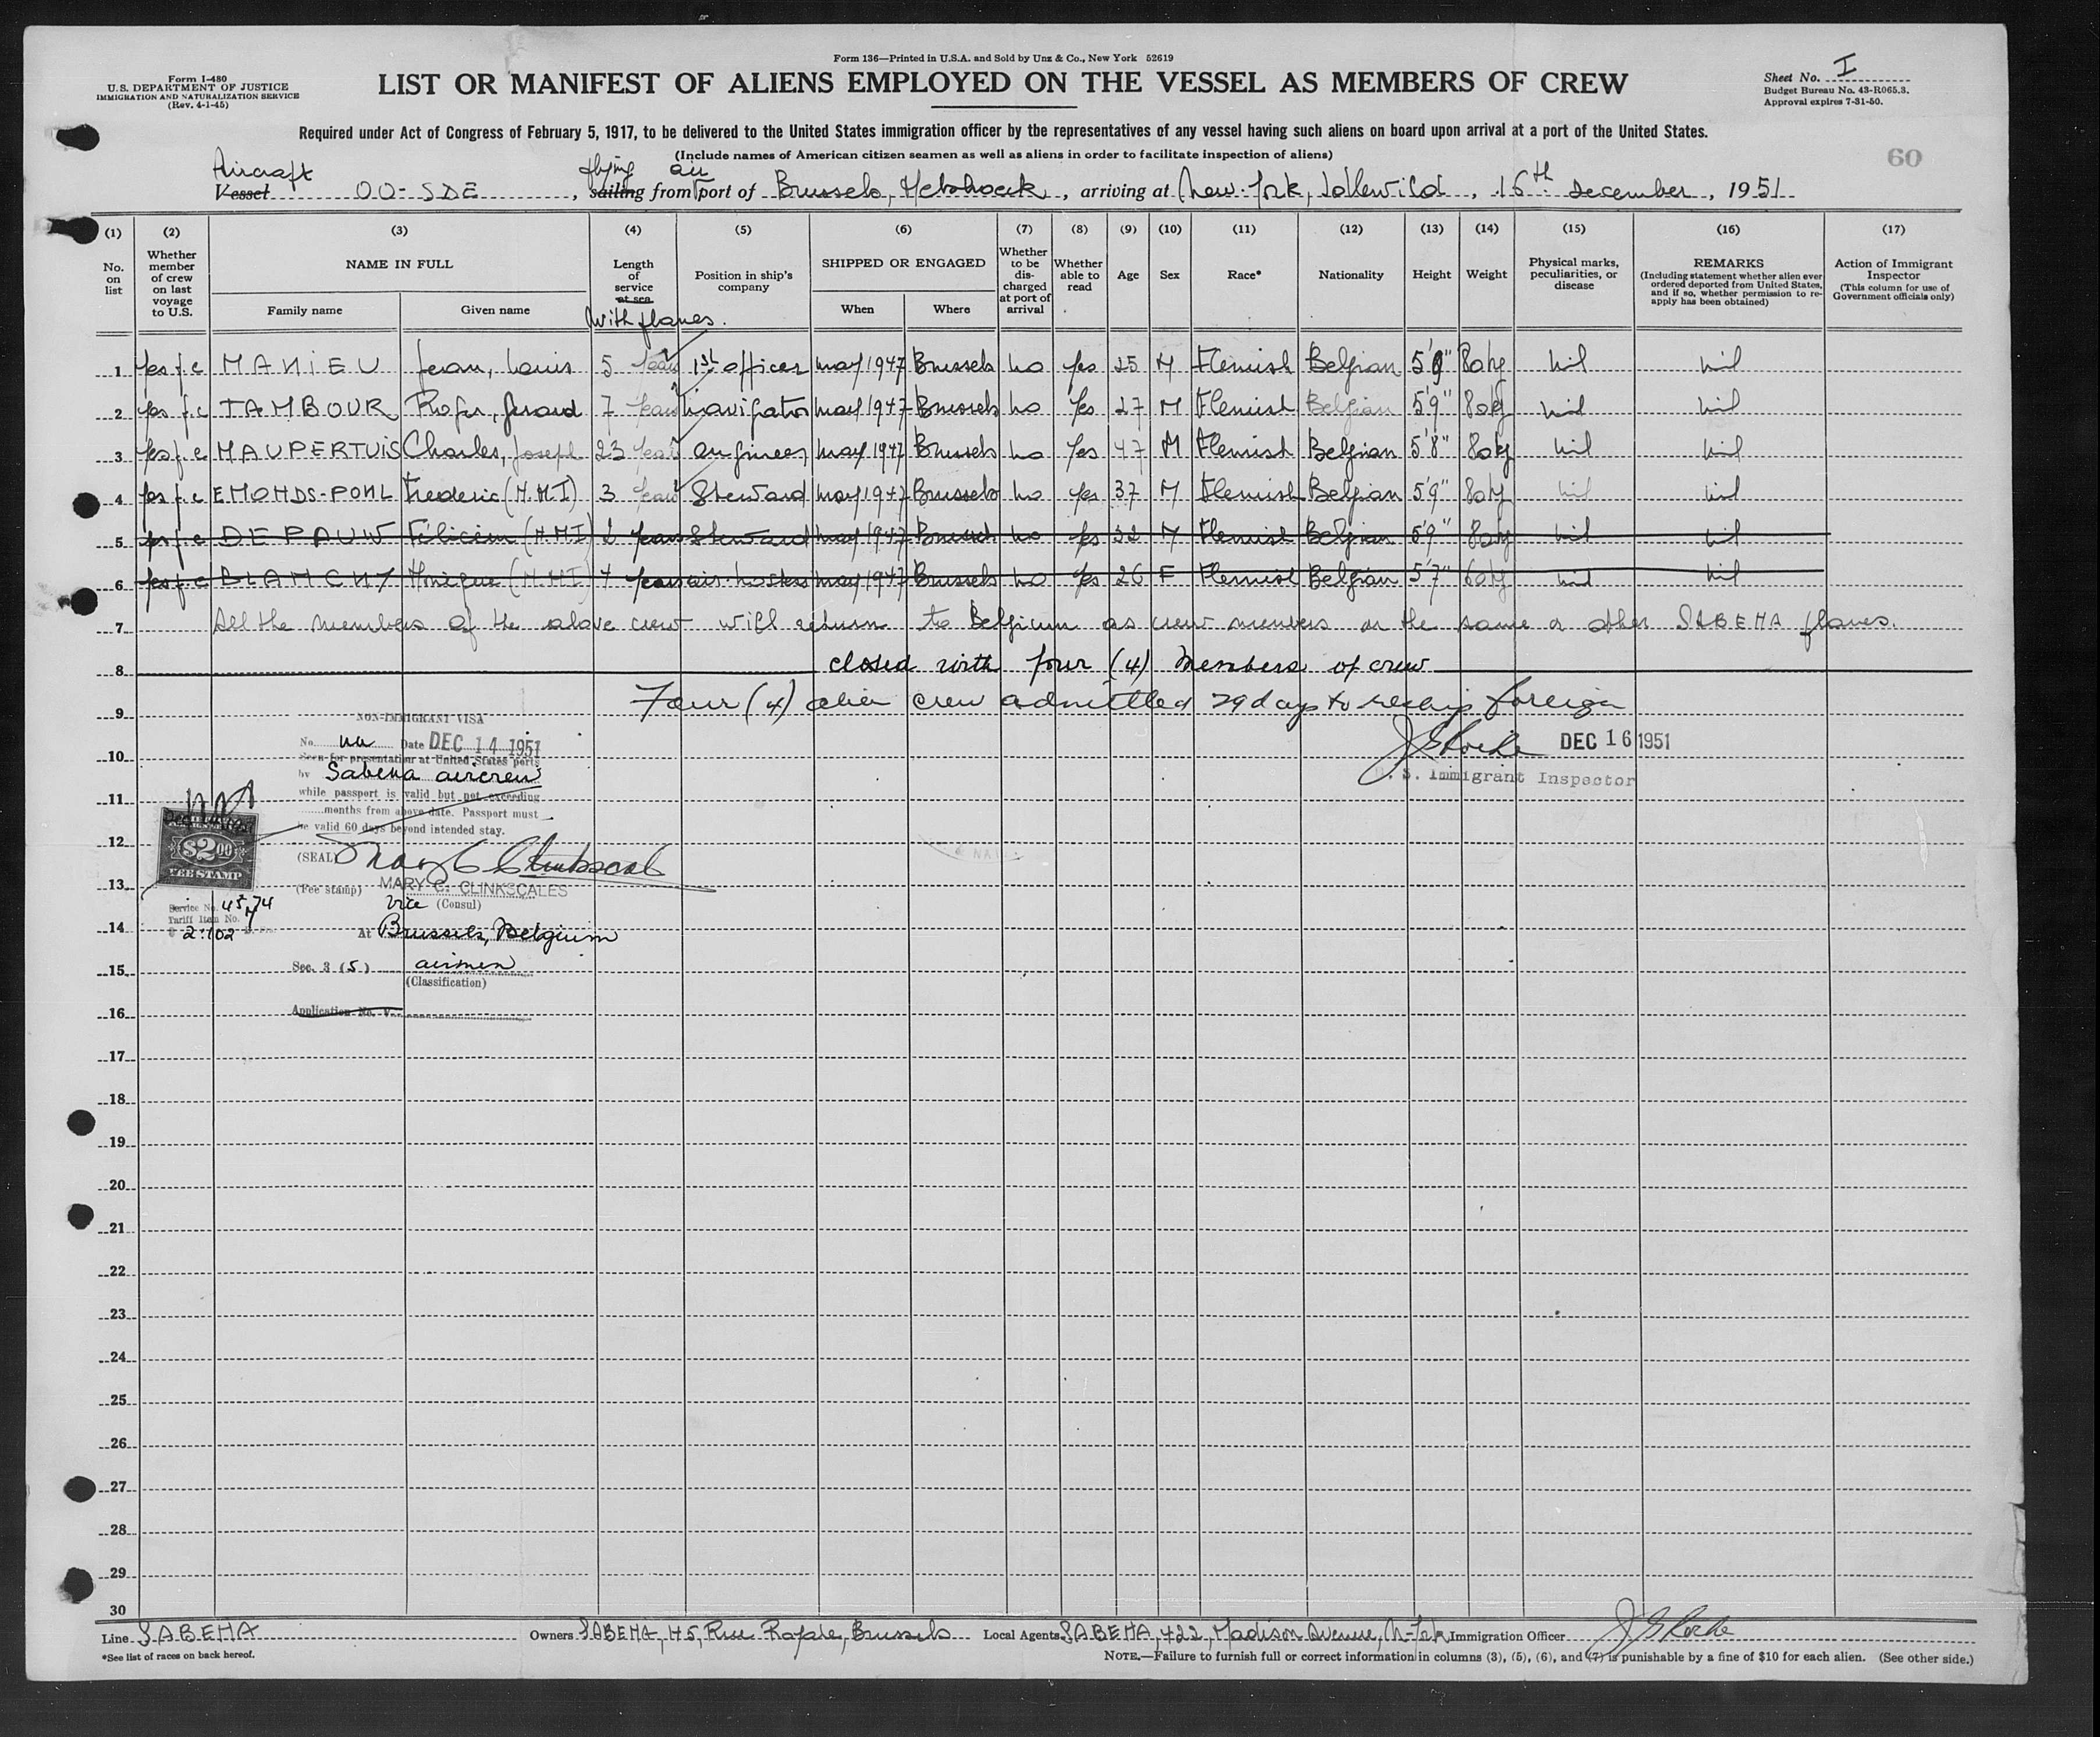 Form 136—Printed in U.S.A. and Sold by Unz & Co., New York 52619
Form I-480
U.S. DEPARTMENT OF JUSTICE
IMMIGRATION AND NATURALIZATION SERVICE
(Rev. 4-1-45)
LIST OR MANIFEST OF ALIENS EMPLOYED ON THE VESSEL AS MEMBERS OF CREW
Sheet No. I
Budget Bureau No. 43-R065.3.
Approval expires 7-31-50.
Required under Act of Congress of February 5, 1917, to be delivered to the United States immigration officer by the representatives of any vessel having such aliens on board upon arrival at a port of the United States.
(Include names of American citizen seamen as well as aliens in order to facilitate inspection of aliens)
60
Aircraft flying air
Vessel OO-SDE, sailing from port of Brussels, Melsbroek, arriving at New-York, Idlewild, 16th december, 1951
(1) (2) (3) (4) (5) (6) (7) (8) (9) (10) (11) (12) (13) (14) (15) (16) (17)
No. on list
Whether member of crew on last voyage to U.S.
NAME IN FULL
Family name
Given name
Length of service at sea
with planes.
Position in ship's company
SHIPPED OR ENGAGED
When
Where
Whether to be discharged at port of arrival
Whether able to read
Age
Sex
Race*
Nationality
Height
Weight
Physical marks, peculiarities, or disease
REMARKS
(Including statement whether alien ever ordered deported from United States, and if so, whether permission to reapply has been obtained)
Action of Immigrant Inspector
(This column for use of Government officials only)
1 Yes f.c MANIEU Jean, Louis 5 years 1st officer may 1947 Brussels no Yes 25 M Flemish Belgian 5'9" 80kg nil nil
2 Yes f.c TAMBOUR 7 years navigator may 1947 Brussels no Yes 27 M Flemish Belgian 5'9" 80kg nil nil
3 Yes f.c MAUPERTUIS Charles, Joseph 23 years engineer may 1947 Brussels no Yes 47 M Flemish Belgian 5'8" 80kg nil nil
4 Yes f.c EMONDS-POHL Frederic (N.M.I) 3 years Steward may 1947 Brussels no Yes 37 M Flemish Belgian 5'9" 80kg nil nil
5 Yes f.c DE PAUW Felicien (N.M.I) 2 years Steward may 1947 Brussels no Yes 32 M Flemish Belgian 5'9" 80kg nil nil
6 Yes f.c BLANCHY Monique (N.M.I) 4 years air-hostess may 1947 Brussels no Yes 26 F Flemish Belgian 5'7" 60kg nil nil
7 All the members of the above crew will return to Belgium as crew members on the same or other SABENA planes.
8 closed with four (4) members of crew
9 Four (4) alien crew admitted 29 days to reship foreign
NON-IMMIGRANT VISA
No. Date DEC 14 1951
10
Seen for presentation at United States ports
by Sabena aircrew
while passport is valid but not exceeding
months from above date. Passport must
be valid 60 days beyond intended stay.
DEC 16 1951
U.S. Immigrant Inspector
11
12
$2.00
FEE STAMP
(SEAL) Mary C Clinkscales
13
(Fee stamp) MARY C. CLINKSCALES
Vice (Consul)
Service No. 4574
Tariff Item No. 7
14
At Brussels, Belgium
15
Sec. 3 (5) airmen
(Classification)
16
Application No. V
17
18
19
20
21
22
23
24
25
26
27
28
29
30
Line SABENA Owners SABENA, 145, Rue Royale, Brussels Local Agents SABENA, 422, Madison Avenue, N-York Immigration Officer
*See list of races on back hereof.
NOTE.—Failure to furnish full or correct information in columns (3), (5), (6), and (7) is punishable by a fine of $10 for each alien. (See other side.)